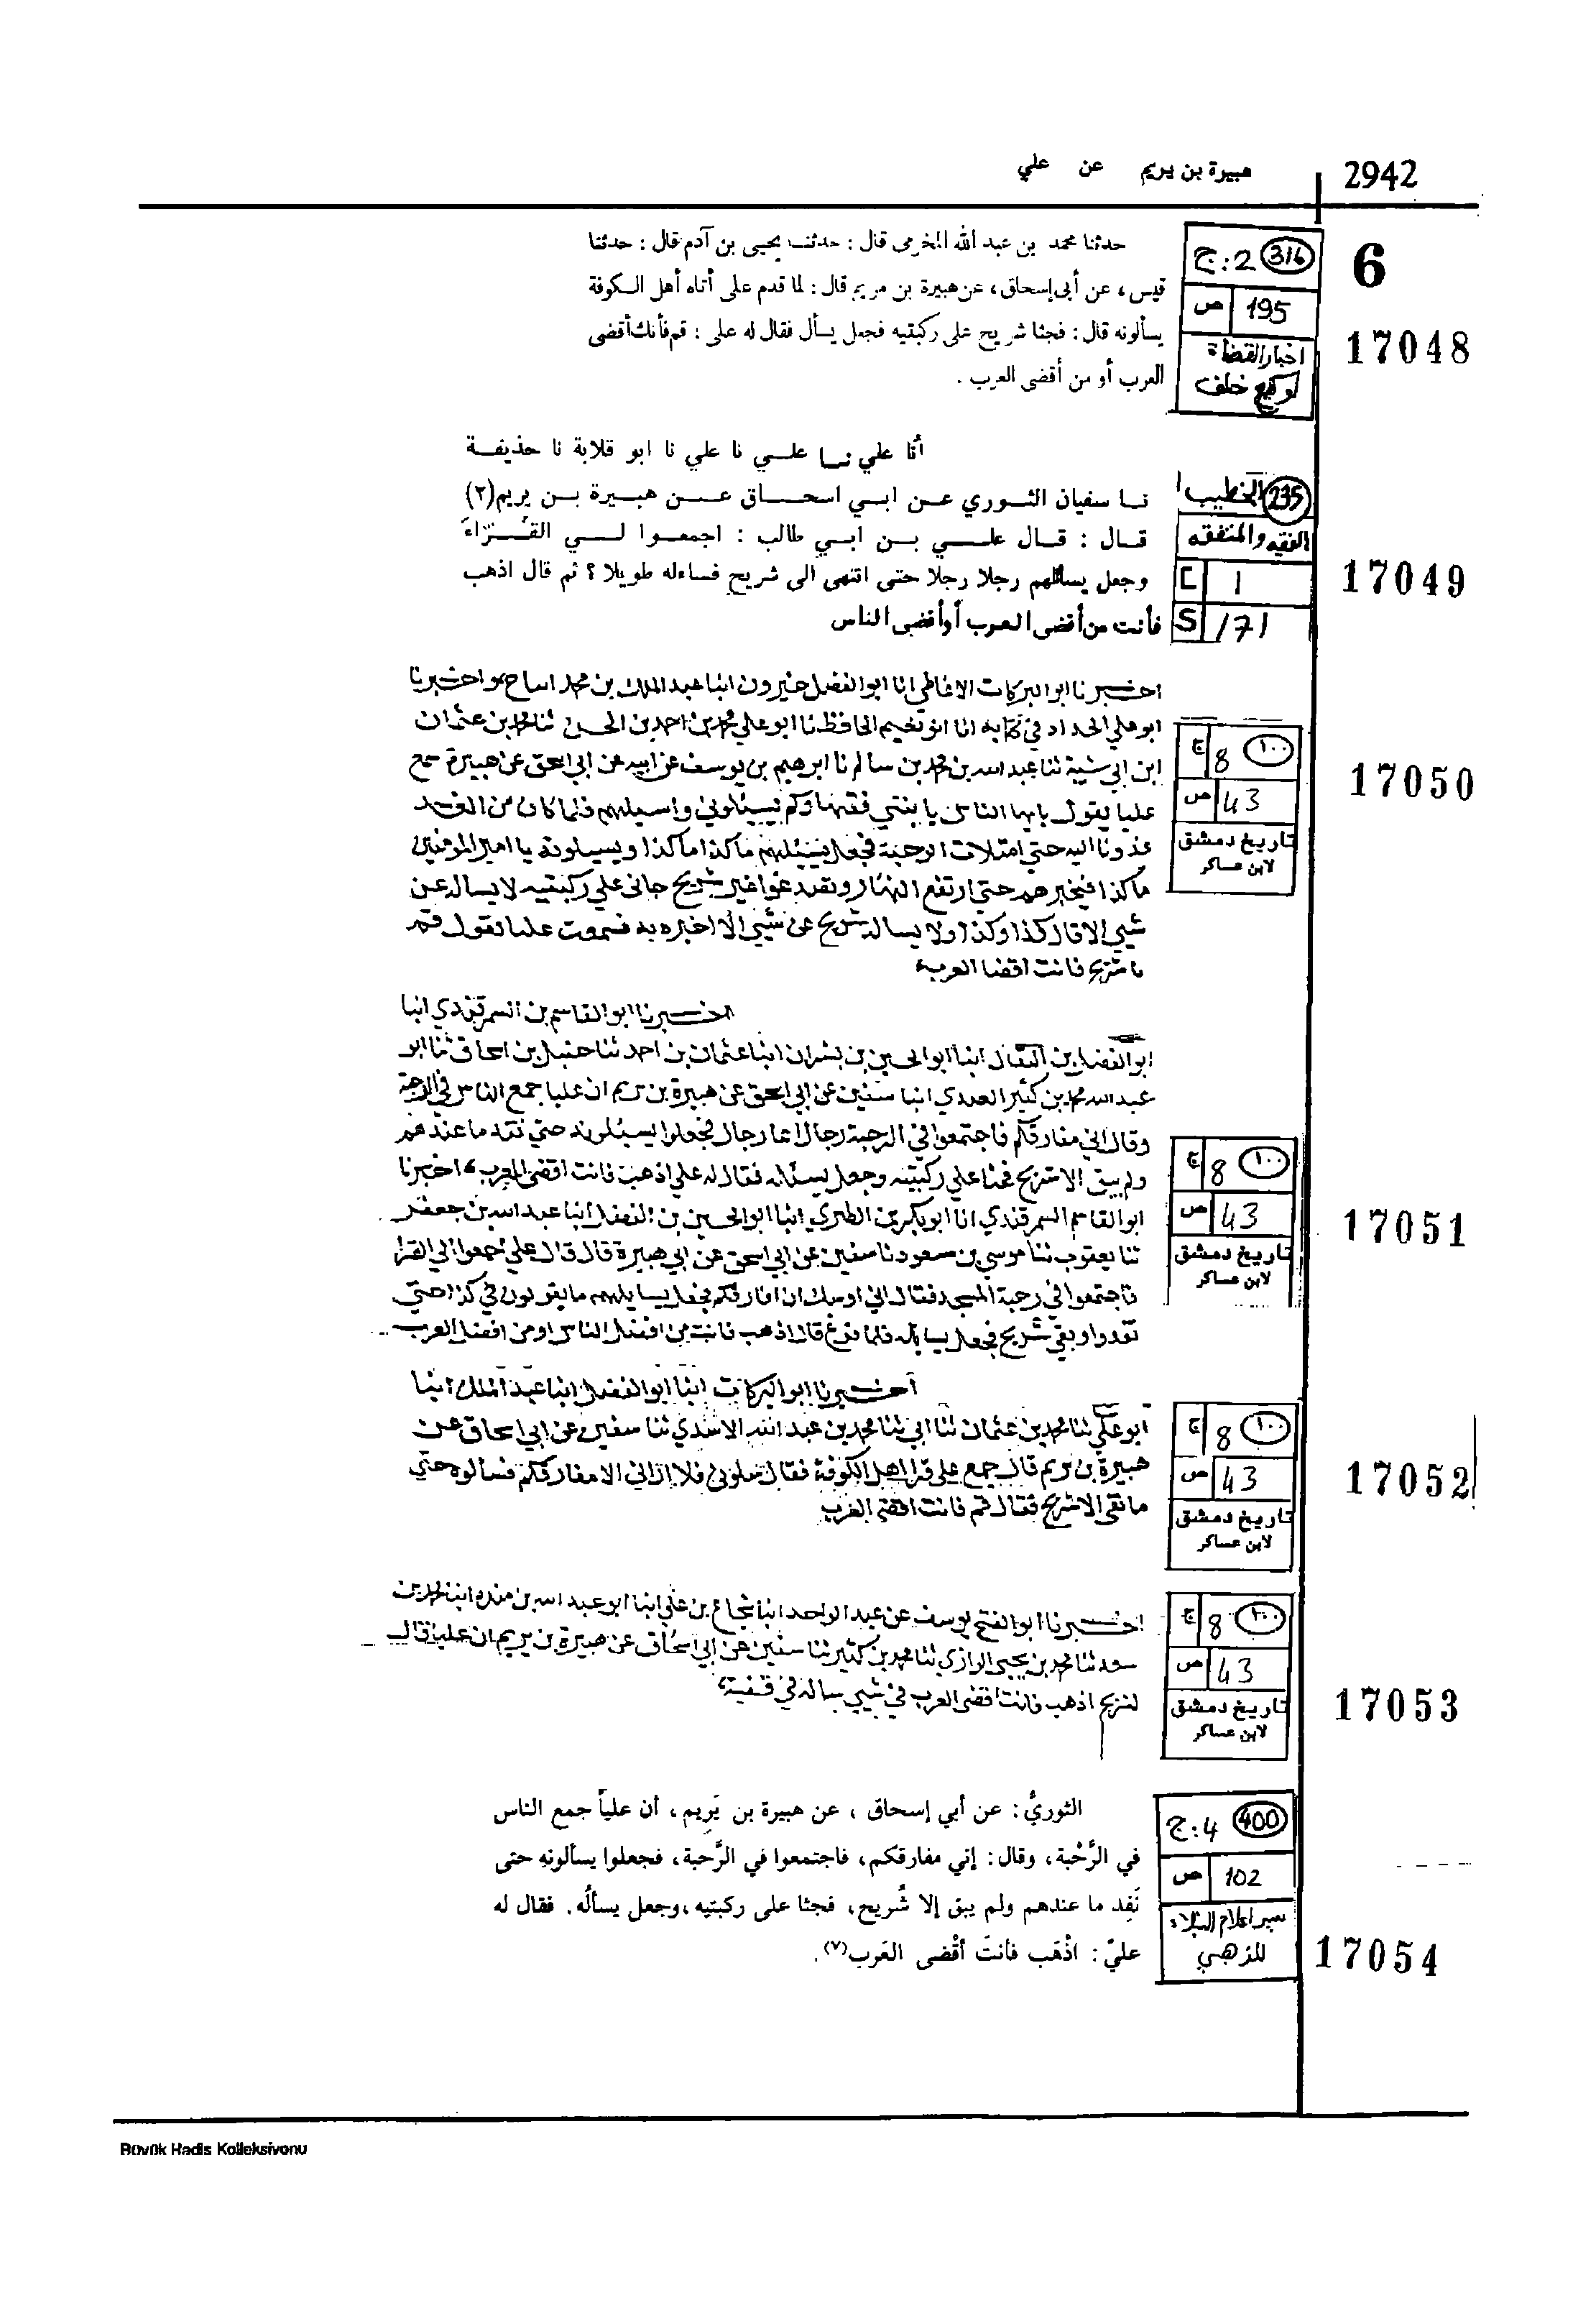 2942
هبيرة بن يريم عن علي
6
316 ج:2
ص 195
اخبار القضاة
لوكيع خلف
17048
حدثنا محمد بن عبد الله المخرمى قال : حدثنـ يحيى بن آدم قال : حدثنا
قيس، عن أبى إسحاق، عن هبيرة بن مريم قال : لما قدم على أتاه أهل الكوفة
يسألونه قال : فجثا شريح على ركبتيه فجعل يسأل فقال له على : قم فأنك أقضى
العرب أو من أقضى العرب .
235 الخطيب ا
الفقيه والمتفقه
C 1
S 171
17049
أنا علي نـا علـي نا علي نا ابو قلابة نا حذيفـة
نـا سفيان الثـوري عـن ابـي اسحـاق عـن هبـيرة بـن يريم(٢)
قـال : قـال علـي بـن ابـي طالب : اجمعـوا لـي القُـرّاءَ
وجعل يسائلهم رجلا رجلا حتى انتهى الى شريح فساءله طويلا ؟ ثم قال اذهب
فأنت من أقضى العرب أو أقضى الناس
١٠٠ 8 ج
ص 43
تاريخ دمشق
لابن عساكر
17050
اخـبرنا ابو البركات الانماطي انا ابو الفضل خيرون انبا عبد الملك بن محمد واخبرنا
ابو علي الحداد في كتابه انا ابو نعيم الحافظ نا ابو علي محمد بن احمد بن الحسن ثنا محمد بن عثمان
ابن ابي شيبة ثنا عبد الله بن محمد بن سالم نا ابرهيم بن يوسف عن ابيه عن ابي اسحق عن هبيرة سمع
عليا يقول يايها الناس يا بنتي فقهاوكم يسيلوني واسيلهم فلما كان من الغـد
غدونا اليه حتي امتلات الرحبة فجعل يسيلهم ما كذا ما كذا ويسيلونه يا امير المومنين
ما كذا فيخبرهم حتي ارتفع النهار غير شريح جاثي علي ركبتيه لا يساله عن
شيي الا قال كذا وكذا ولا يساله شريح عن شيي الا اخبره به فسمعت عليا يقول قم
يا شريح فانت اقضا العرب
اخـبرنا ابو القاسم بن السمرقندي انبا
ابو الفضل بن البقال انبا ابو الحسين بن بشران انبا عثمان بن احمد ثنا حنبل بن اسحاق ثنا ابو
عبد الله محمد بن كثير العبدي انبا سفين عن ابي اسحق عن هبيرة بن يريم ان عليا جمع الناس في الرحبة
وقال اني مفارقكم فاجتمعوا في الرحبة رجال فجعلوا يسيلونه حتي نفد ما عندهم
ولم يبق الا شريح فجثا علي ركبتيه وجعل يسئله فقال له علي اذهب فانت اقضي العرب اخبرنا
ابو القاسم السمرقندي انا ابو بكر بن الطبري انبا ابو الحسين بن الفضل انبا عبد الله بن جعفر
ثنا يعقوب ثنا موسي بن مسعود نا سفين عن ابي اسحق عن ابي هبيرة قال قال علي اجمعوا الي القرا
فاجتمعوا في رحبة المسجد فقال اني اوشك ان افارقكم فجعل يسايلهم ما يقولون في كذا حتي
نفدوا وبقي شريح فجعل يسايله فلما فرغ قال اذهب فانت من افضل الناس او من افضل العرب
١٠٠ 8 ج
ص 43
تاريخ دمشق
لابن عساكر
17051
اخـبرنا ابو البركات انبا ابو الفضل انبا عبد الملك انبا
ابو علي ثنا محمد بن عثمان ثنا ابي ثنا محمد بن عبد الله الاسدي ثنا سفين عن ابي اسحاق عن
هبيرة بن يريم قال جمع علي قرا اهل الكوفة فقال سلوني فلا اراني الا مفارقكم فسالوه حتي
ما بقي الا شريح فقال قم فانت اقضي العرب
١٠٠ 8 ج
ص 43
تاريخ دمشق
لابن عساكر
17052
اخـبرنا ابو الفتح يوسف بن عبد الواحد انبا شجاع بن علي انبا ابو عبد الله بن منده انبا محمد بن
سعد ثنا محمد بن يحيى الرازي ثنا محمد بن كثير ثنا سفين عن ابي اسحاق عن هبيرة بن يريم ان عليا قال
لشريح اذهب فانت اقضي العرب في شيي ساله في قضية
١٠٠ 8 ج
ص 43
تاريخ دمشق
لابن عساكر
17053
400 ج:4
ص 102
سير اعلام النبلاء
للذهبي
17054
الثوريُّ: عن أبي إسحاق ، عن هبيرة بن يَرِيم، أن علياً جمع الناس
في الرَّحْبة، وقال: إني مفارقكم، فاجتمعوا في الرَّحبة، فجعلوا يسألونه حتى
نَفِد ما عندهم ولم يبق إلا شُريح، فجثا على ركبتيه ،وجعل يسألُه. فقال له
عليّ: اذْهَب فأنتَ أقْضى العَرب(٧).
Büyük Hadis Kolleksiyonu